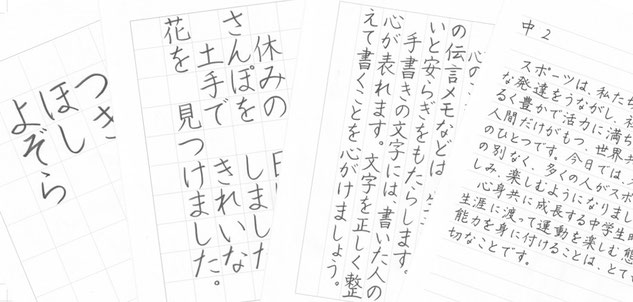 つき
ほし
よぞら
休みの
さんぽを しました
土手で きれいな
花を 見つけました。
心の
の伝言メモなどは
いと安らぎをもたらします。
手書きの文字には、書いた人の
心が表れます。文字を正しく整
えて書くことを心がけましょう。
中2
スポーツは、私たち
な発達をうながし、
るく豊かで活力に満ち
人間だけがもつ、世界共
のひとつです。今日では、
の別なく、多くの人がスポ
しみ、楽しむようになりまし
心身共に成長する中学生時
生涯に渡って運動を楽しむ態
能力を身に付けることは、とて
切なことです。